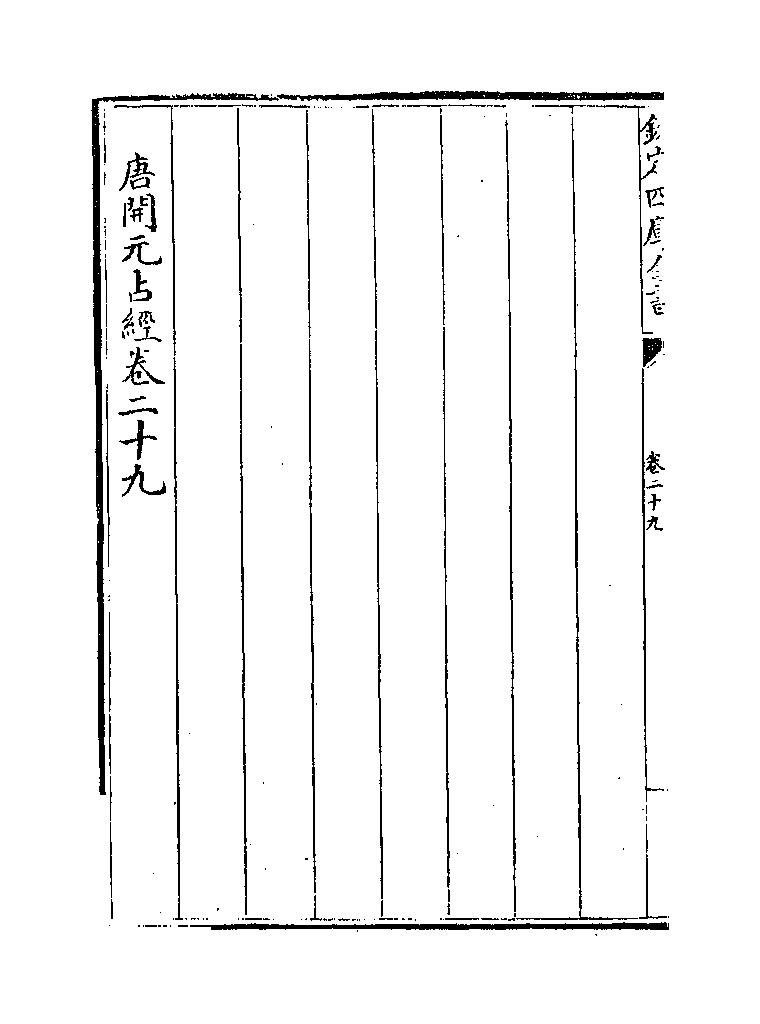 欽定四庫全書
卷二十九
唐開元占經卷二十九